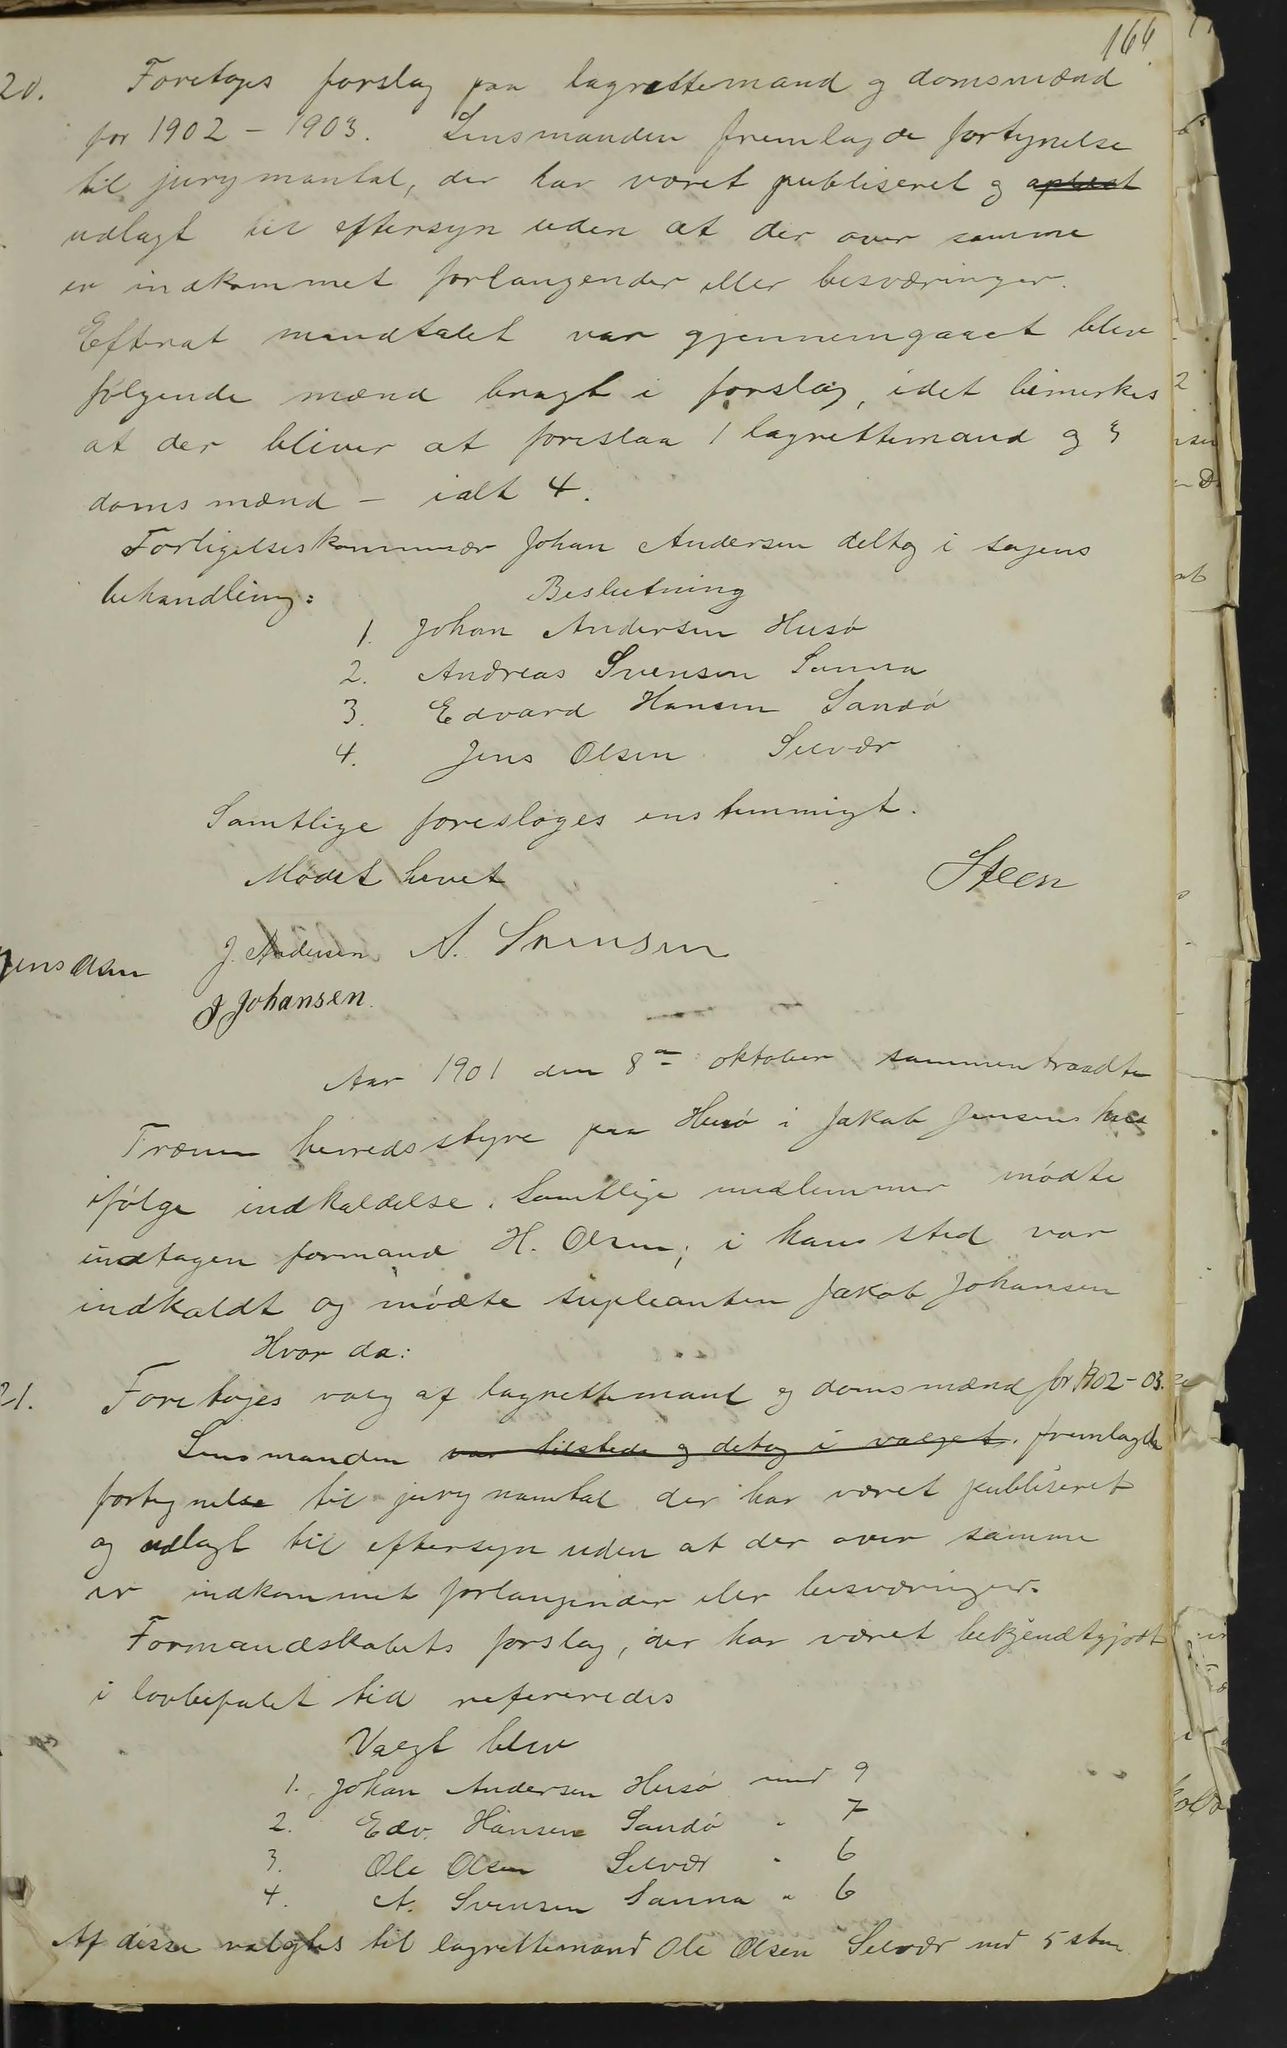 166
20. Foretoges forslag paa lagrettemand og domsmænd
for 1902 - 1903. Lensmanden fremlagde fortegnelse
til jurymantal, der har været publiseret og
udlagt til eftersyn uden at der over samme
er indkommet forlangender eller besværinger.
Efterat mandtalet var gjennemgaaet blev
følgende mænd bragt i forslag, idet bemerkes
at der bliver at foreslaa 1 lagrettemand og 3
domsmænd - ialt 4.
Forligelseskommisær Johan Andersen deltog i sagens
behandling: Beslutning
1. Johan Andersen Husø
2. Andreas Svensen Sanna
3. Edvard Hansen Sandø
4. Jens Olsen Selvær
Samtlige foresloges enstemmigt.
Mødet hevet Steen
Jens Olsen J. Andersen A. Svensen
J Johansen.
Aar 1901 den 8de oktober sammentraadte
Trænen herredsstyre paa Husø i Jakob Jensens hus
ifølge indkaldelse. Samtlige medlemmer mødte
undtagen formand H. Olsen; i hans sted var
indkaldt og mødte supleanten Jakob Johansen
Hvor da:
21. Foretoges valg af lagrettemand og domsmænd for 1902-03.
Lensmanden var tilstede og deltog i valget. fremlagde
fortegnelse til jurymantal der har været publiseret
og udlagt til eftersyn uden at der over samme
er indkommet forlangender eller besværinger.
Formandskabets forslag, der har været bekjendtgjort
i lovbefalet tid refereredes
Valgt blev
1. Johan Andersen Husø med 9
2. Edv. Hansen Sandø " 7
3. Ole Olsen Selvær " 6
4. A. Svensen Sanna " 6
Af disse valgtes til lagrettemand Ole Olsen Selvær med 5 stm